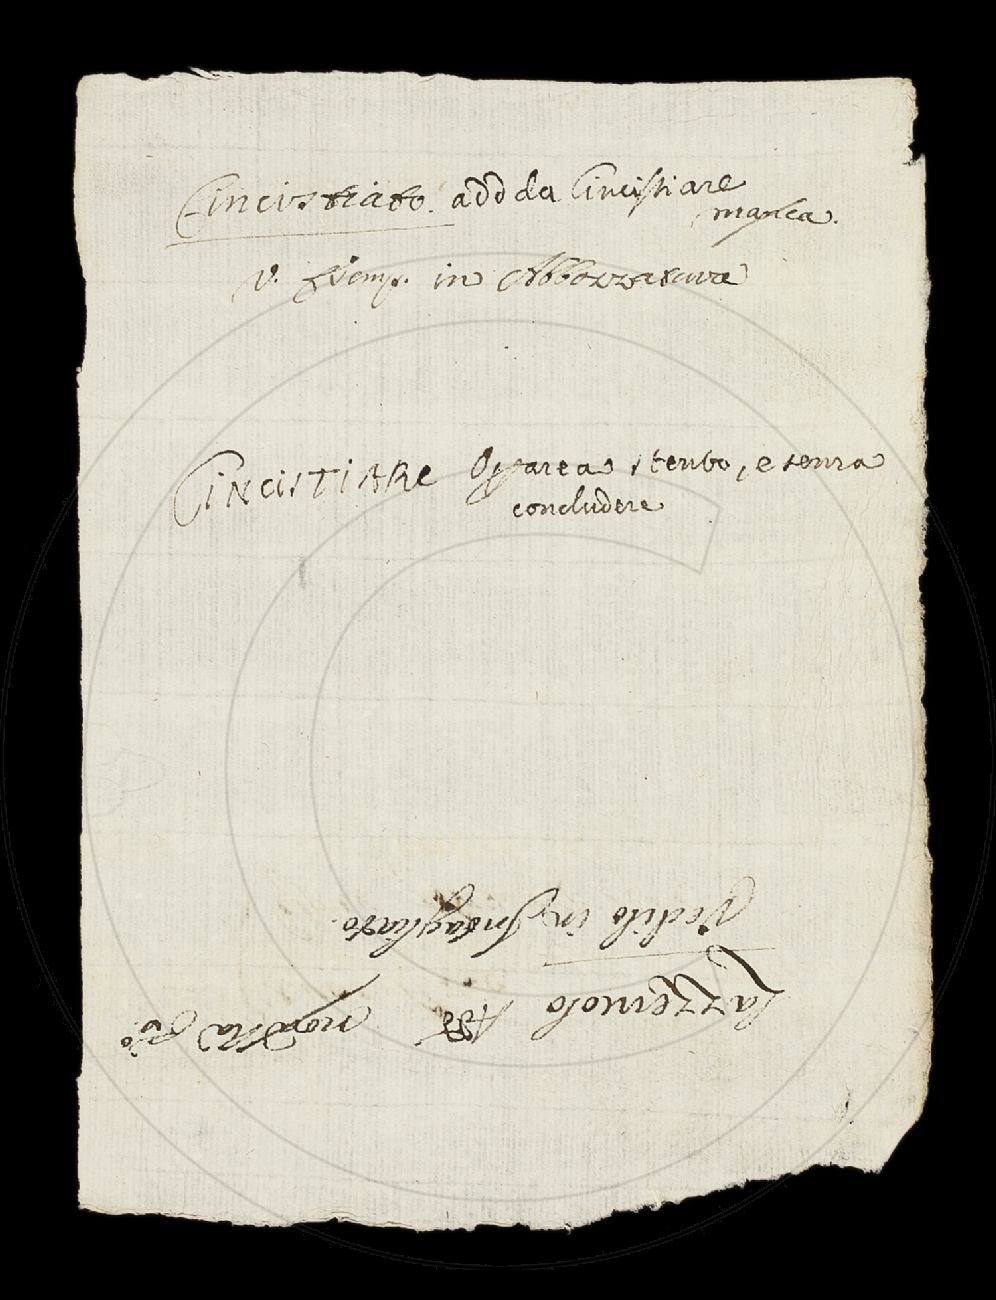 Cincistiato. add da Cincistiare
manca.
V. Esemp. in Abbozzatura
CINCISTIARE Operare a stento, e senza
concludere
Lazzeruolo Add
Vedilo in Intagliato.